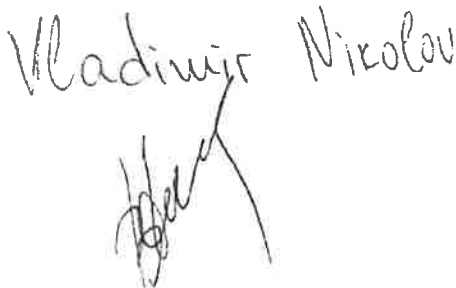 Vladimir Nikolov